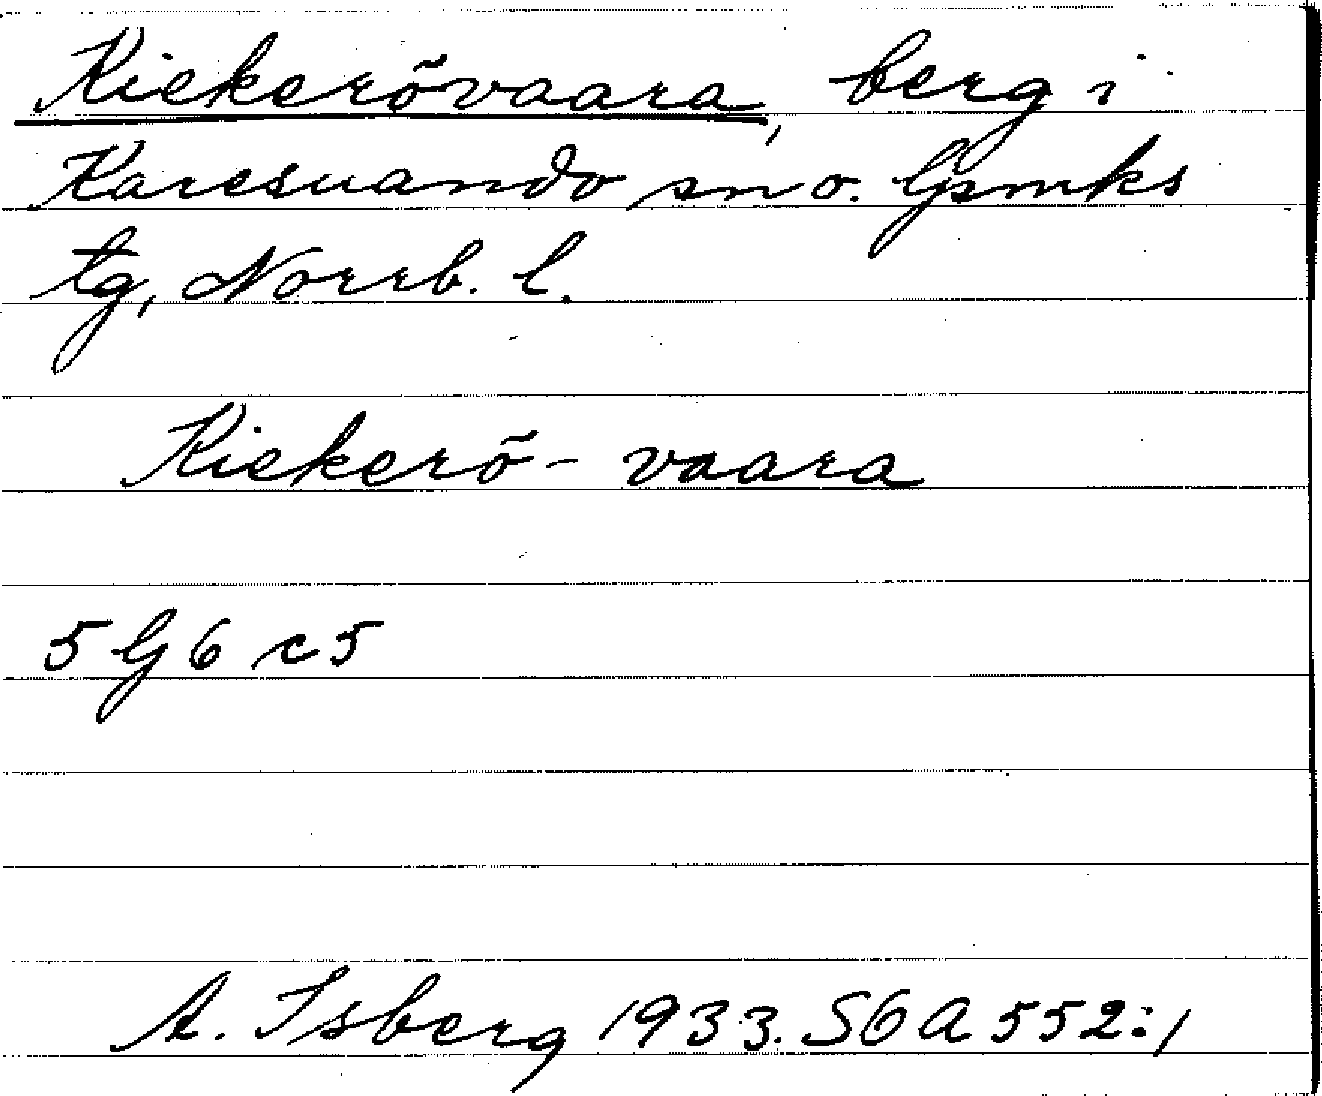 Kiekerövaara, berg i
Karesuando sn o. lpmks
tg, Norrb. l.
Kiekerö - vaara
5 G 6 c 5
A. Isberg 1933. SOA 552:1